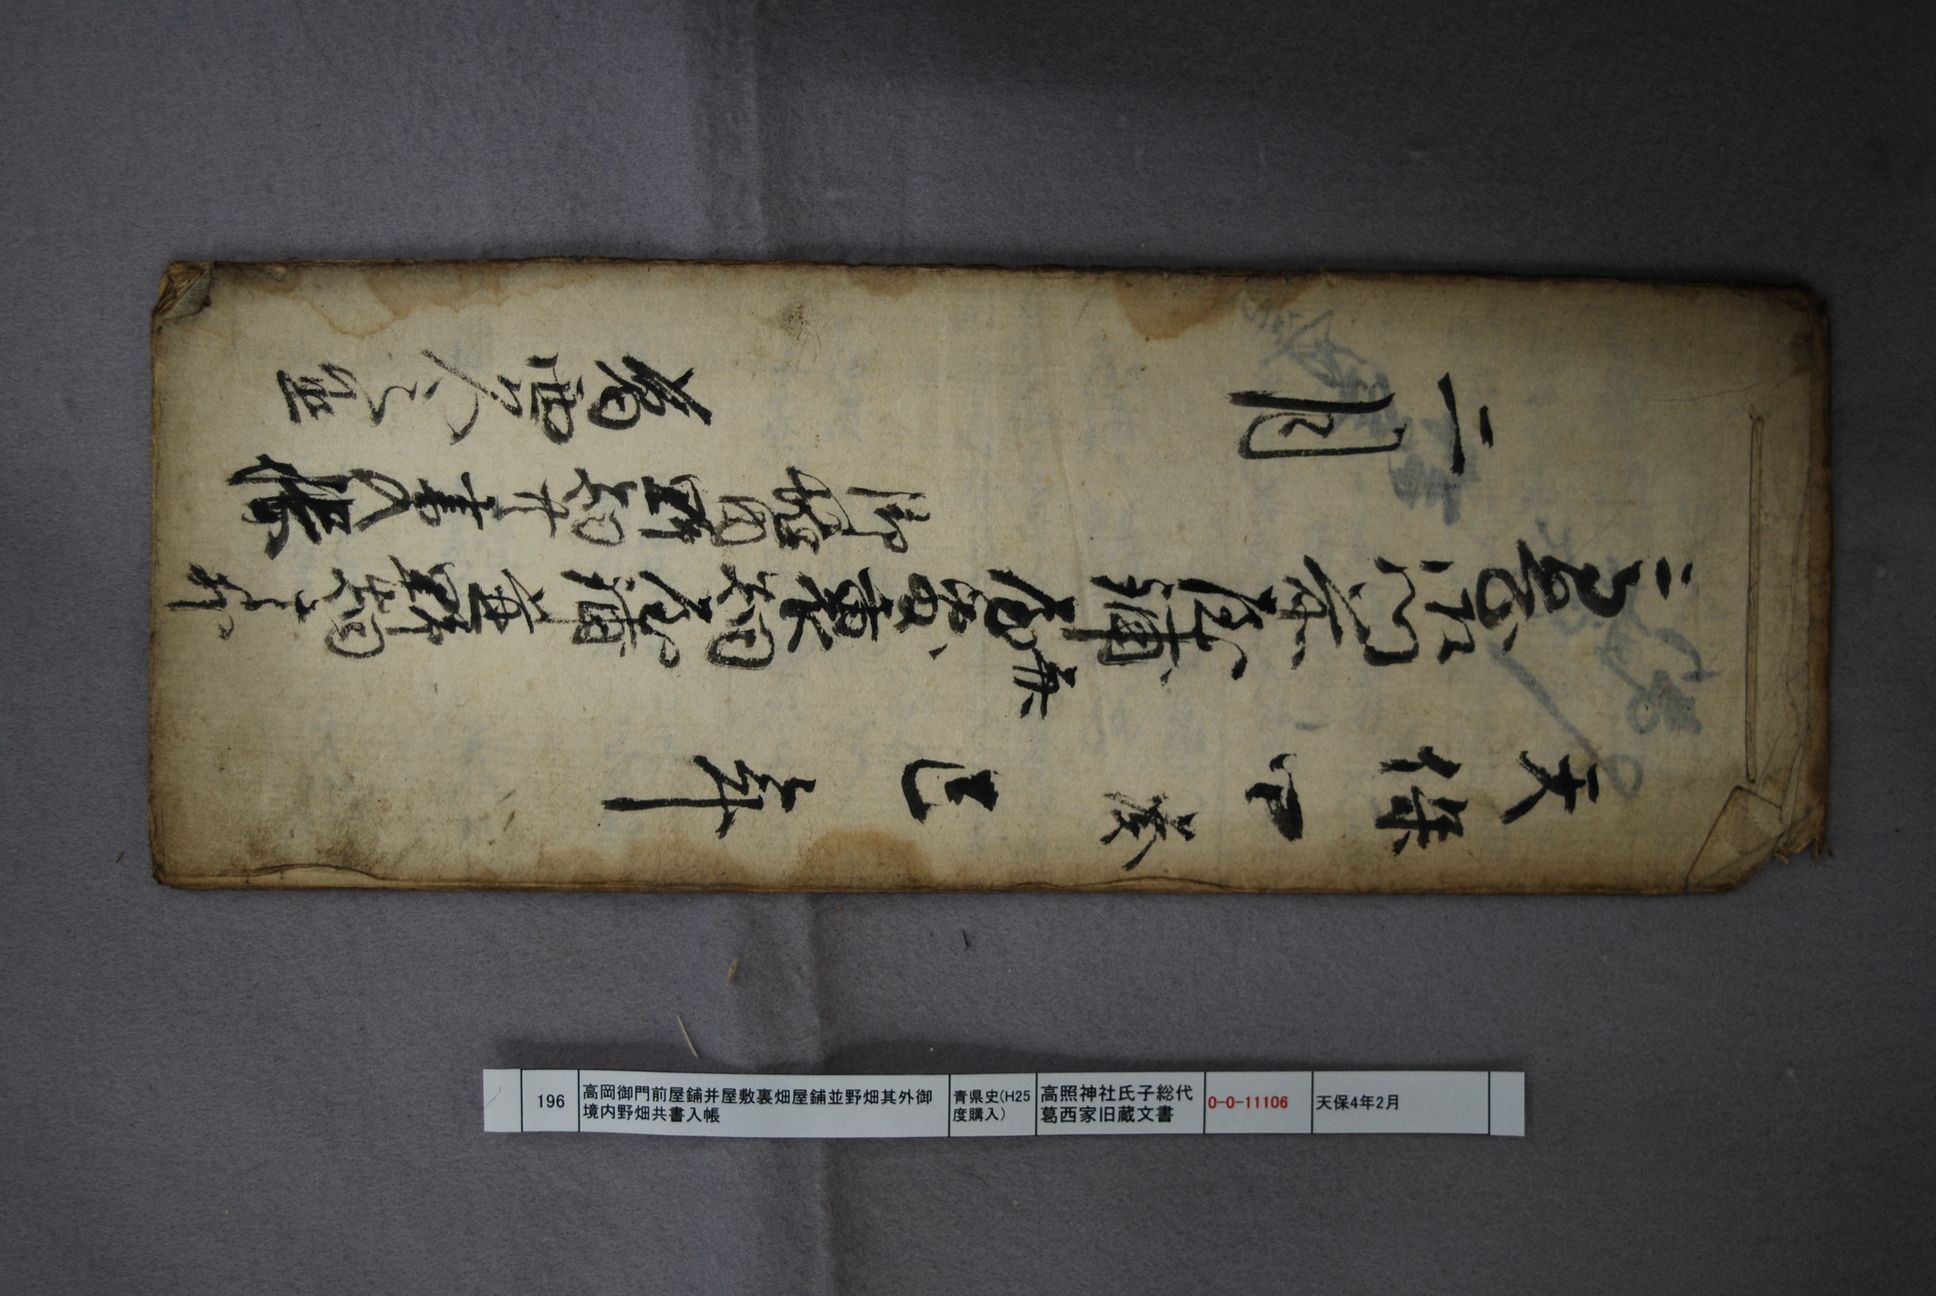 天保四癸巳年
高岡御門前屋鋪并
屋敷裏畑屋鋪並野畑其外
御境内野畑共書入帳
二月
葛西
196
高岡御門前屋鋪并屋敷裏畑屋鋪並野畑其外御
境内野畑共書入帳
青県史(H25
度購入)
高照神社氏子総代
葛西家旧蔵文書
0-0-11106
天保4年2月